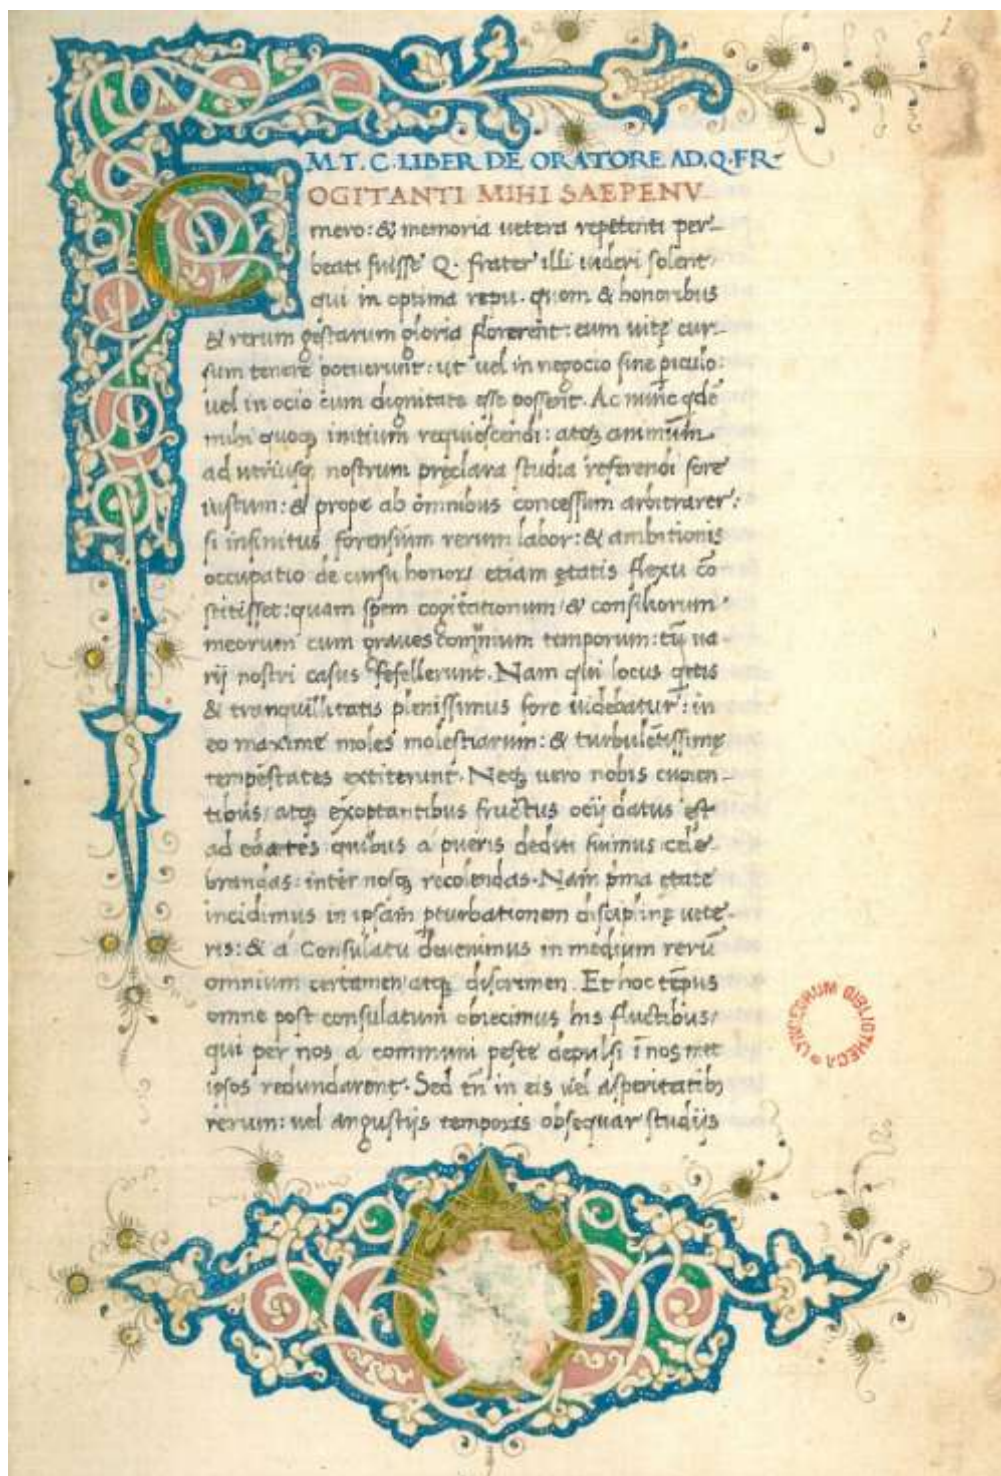 M.T.C. LIBER DE ORATORE AD.Q.FR-
COGITANTI MIHI SAEPENV-
mero: & memoria uetera repetenti per-
beati fuisse Q. frater illi uideri solent
qui in optima repu. quom & honoribus
& rerum gestarum gloria florerent: eum uitę cur-
sum tenere potuerunt: ut uel in negocio sine piculo:
uel in ocio cum dignitate esse possent. Ac nunc qdē
mihi quoqꝫ initium requiescendi: atqꝫ animum
ad utriusqꝫ nostrum pręclara studia referendi fore
iustum: & prope ab omnibus concessum arbitrarer:
si infinitus forensium rerum labor: & ambitionis
occupatio de cursu honorꝭ etiam ętatis flexu cō
stitisset: quam spem cogitationum & consiliorum
meorum cum graues comnium temporum: tū ua
rij nostri casus fefellerunt. Nam qui locus qetis
& tranquillitatis plenissimus fore uidebatur: in
eo maxime moles molestiarum: & turbulētissimę
tempestates extiterunt. Neqꝫ uero nobis cupien-
tibus, atqꝫ exoptantibus fructus ocij datus est
ad eas artes quibus a pueris dediti fuimus cele
brandas: inter nosqꝫ recolendas. Nam pma ętate
incidimus in ipsam pturbationem disciplinę uete-
ris: & a Consulatu deuenimus in medium rerū
omnium certamen atqꝫ discrimen. Et hoc tēpus
omne post consulatum obiecimus his fluctibus,
qui per nos a communi peste depulsi ī nos met
ipsos redundarent. Sed tn̄ in eis uel asperitatibꝫ
rerum: uel angustijs temporis obsequar studijs
LYNCEORUM BIBLIOTHECA